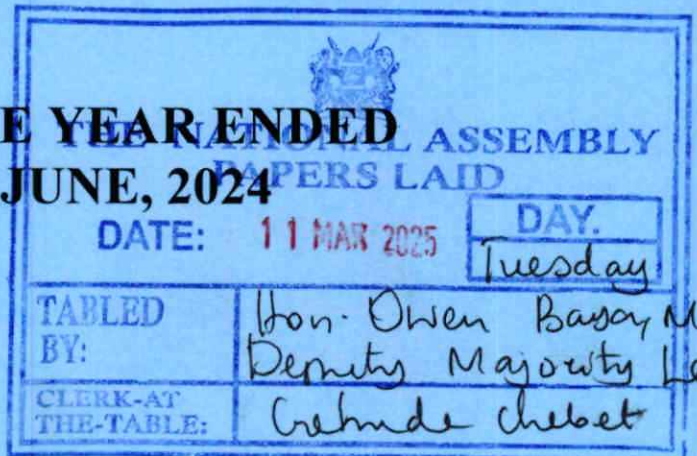 E YEAR ENDED
THE NATIONAL ASSEMBLY
JUNE, 2024
PAPERS LAID
DATE: 11 MAR 2025
DAY.
Tuesday
TABLED BY:
Hon. Owen Baya, M
Deputy Majority Le
CLERK-AT THE-TABLE:
Gertrude Chebet